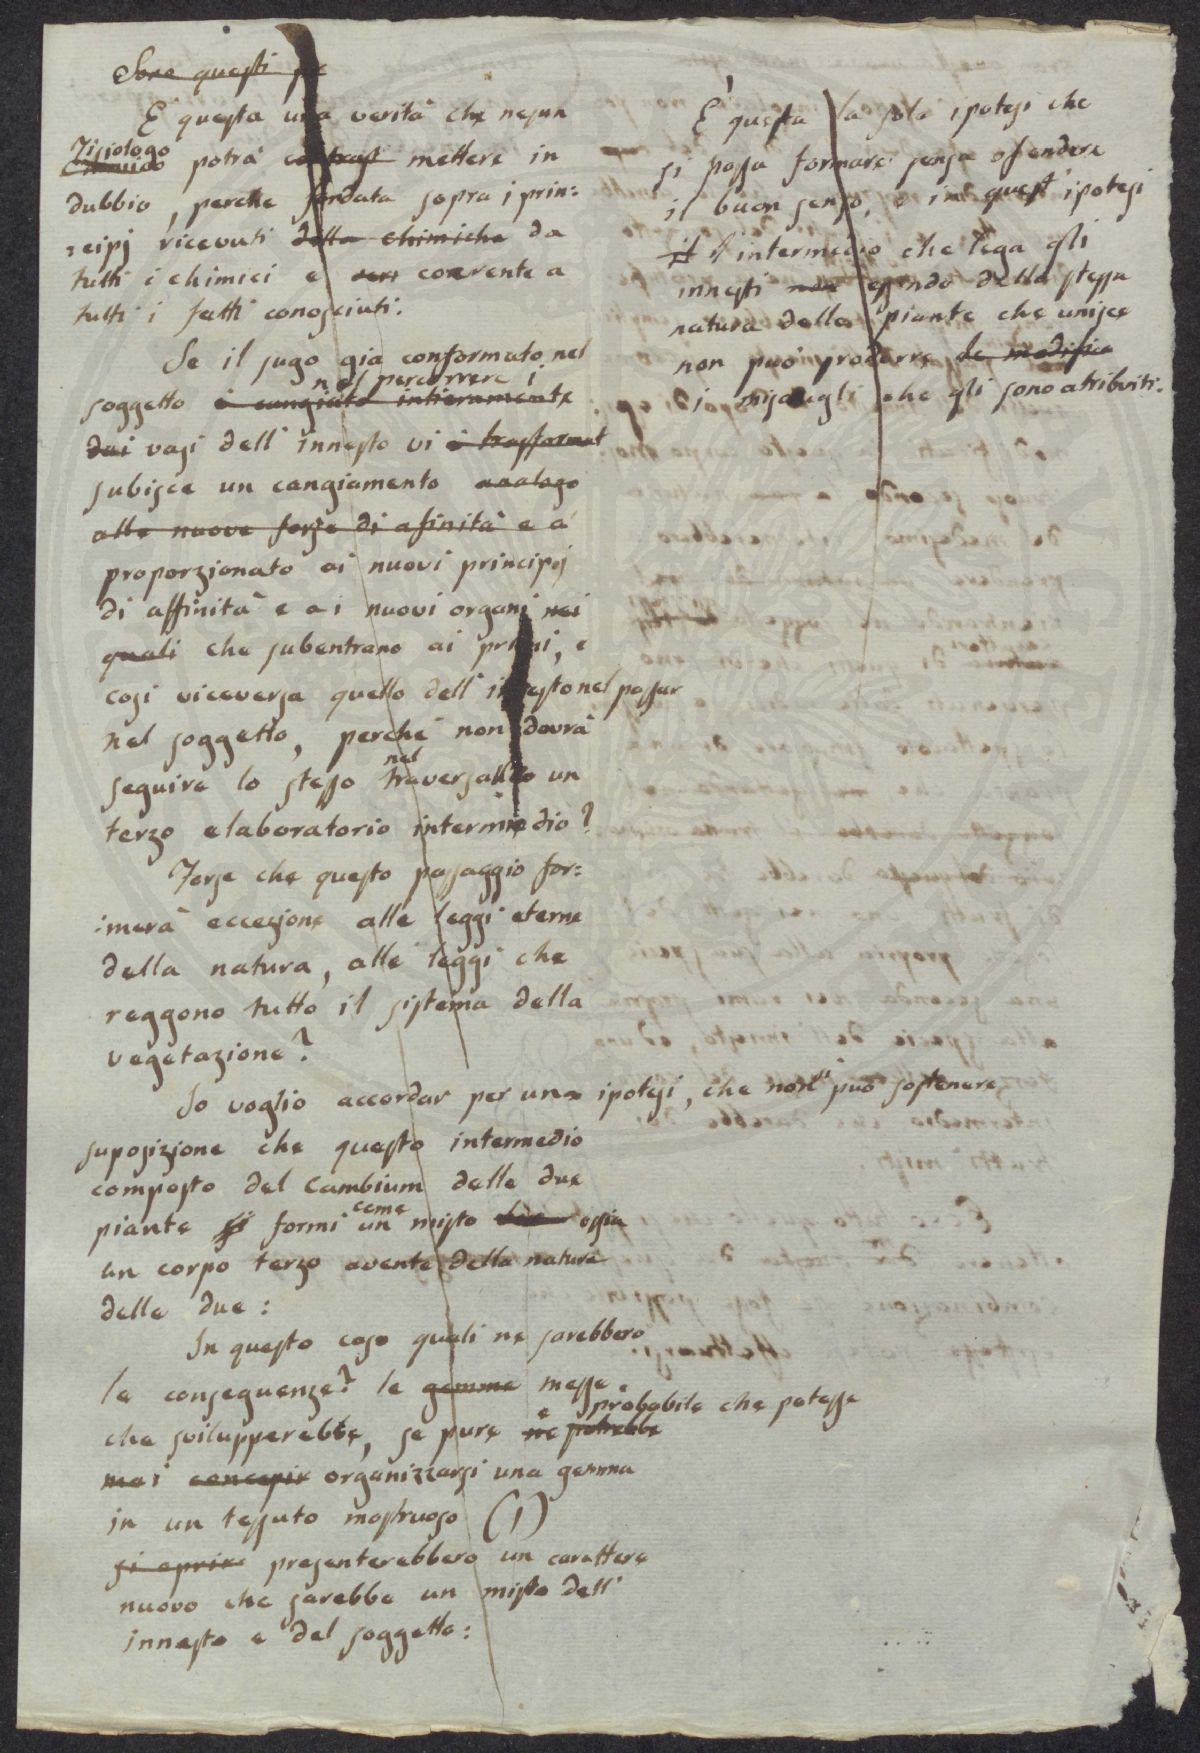 Sono questi
E questa una verità che nesun
Fisiologo
Chimico potrà contrast mettere in
dubbio, perche fondata sopra i prin:
:cipj ricevuti dalla chimiche da
tutti i chimici e coerente a
tutti i fatti conosciuti.
Se il sugo gia conformato nel
nel percorrere i
soggetto è cangiato intieramente
dai vasi dell'innesto vi è trasformat
subisce un cangiamento analogo
alle nuove forze di afinità e a
proporzionato ai nuovi principij
di affinità e a i nuovi organi nei
quali che subentrano ai primi, e
cosi viceversa quello dell'innesto nel passar
nel soggetto, perchè non dovrà
nel
seguire lo stesso traversando un
terzo elaboratorio intermedio?
Forse che questo passaggio for:
:merà eccezione alle leggi eterne
della natura, alle leggi che
reggono tutto il sistema della
vegetazione?
Io voglio accordar per una ipotesi, che non si può sostenere
suposizione che questo intermedio
composto del Cambium delle due
come
piante si formi un misto ossia
un corpo terzo avente della natura
delle due:
In questo caso quali ne sarebbero
le conseguenze? le gemme messe
è probabile che potesse
che svilupperebbe, se pure ne potrebbe
mai concepir organizzarsi una gemma
in un tessuto mostruoso (1)
si aprir presenterebbero un carattere
nuovo che sarebbe un misto dell'
innesto e del soggetto:
È questa la sola ipotesi che
si possa formare senza offendere
il buon senso, e in quest'ipotesi
il l'intermedio che lega gli
innesti non essendo della stessa
natura della piante che unisce
non può produrre le modifica
i miscugli che gli sono atribuiti.